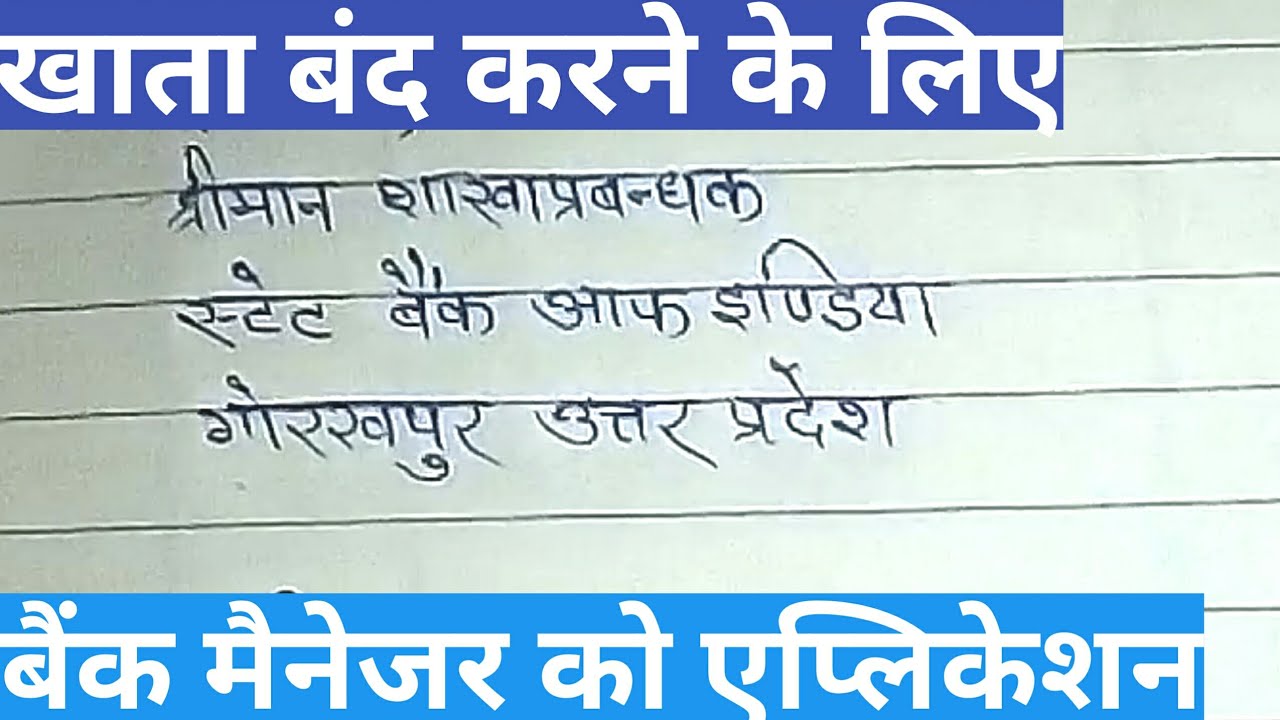 खाता बंद करने के लिए
श्रीमान शाखाप्रबन्धक
स्टेट बैंक आफ इण्डिया
गोरखपुर उत्तर प्रदेश
बैंक मैनेजर को एप्लिकेशन